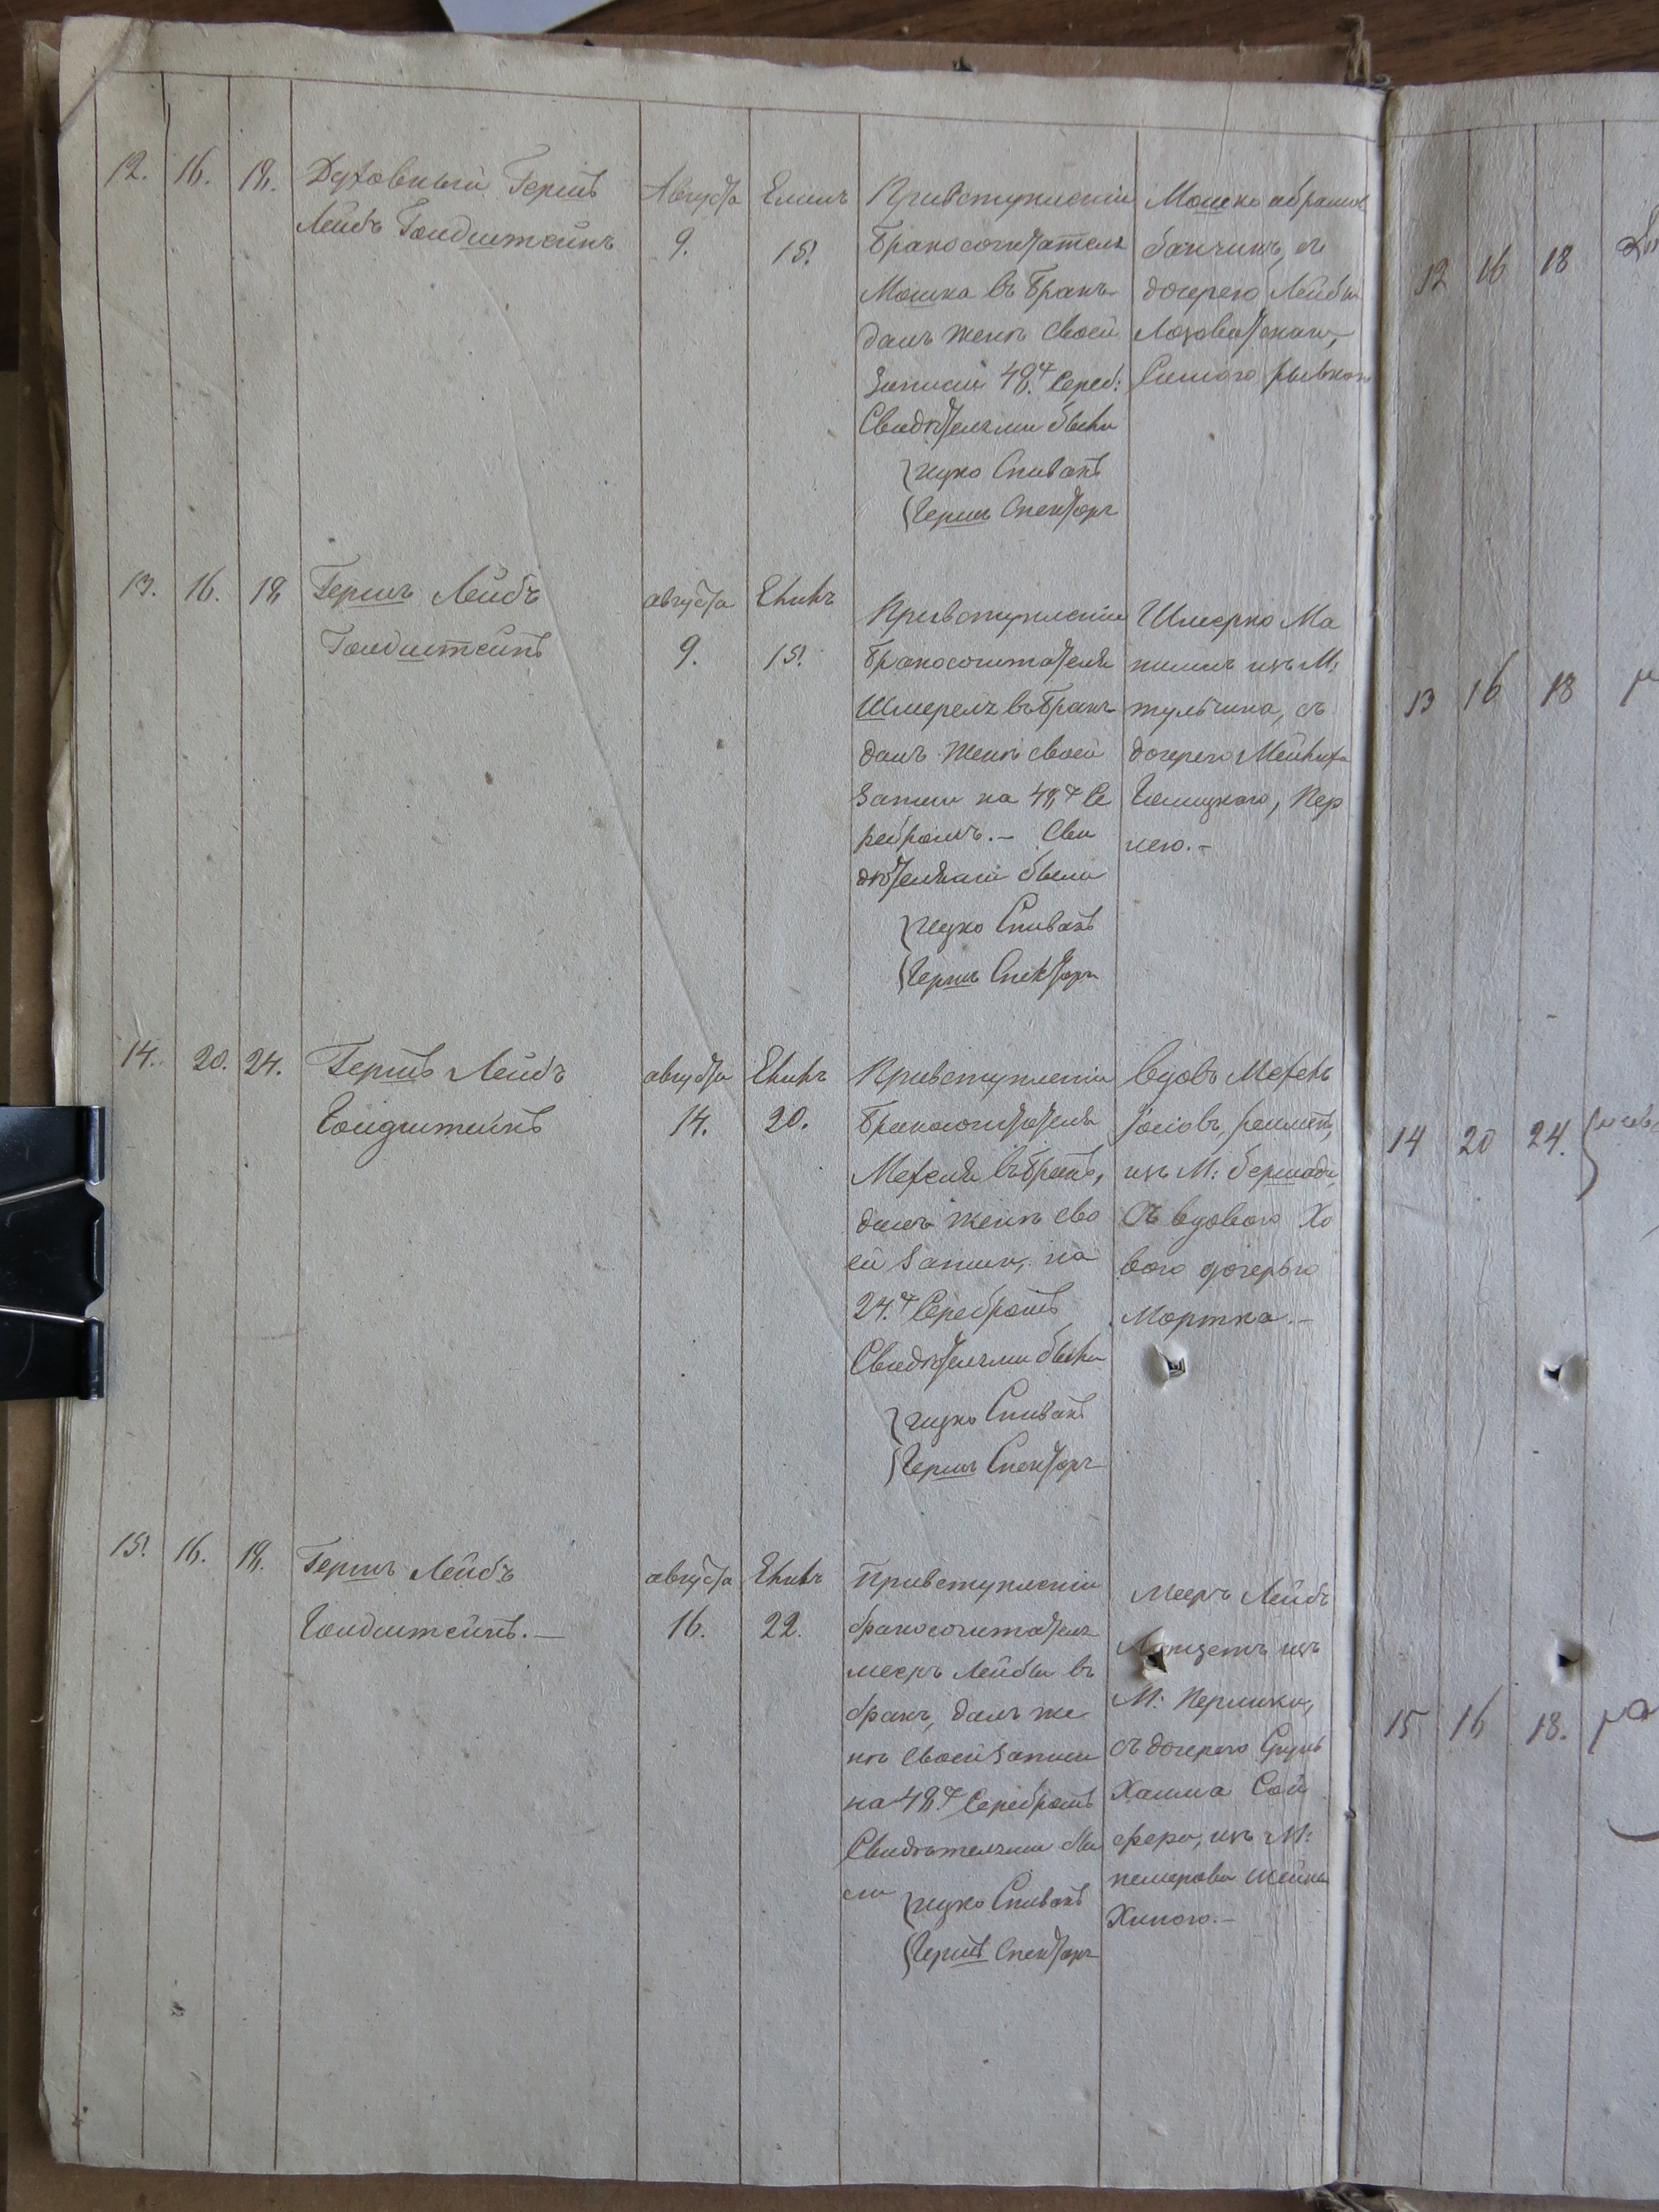 12. 16. 18. Духовный Гершъ
Лейбъ Гольдштейнъ
Августа
9.
Елулъ
15.
При вступленіи
бракосочетателя
Мошка въ бракъ
далъ женѣ своей
записи 48. Сереб:
Свидѣтелями были
Ицко Спивакъ
Гершъ Спекторъ
Мошко абрамов
банчикъ, съ
дочерею Лейбы
Лозоватскаго,
12 16 18
13. 16. 18. Гершъ Лейбъ
Гольдштейнъ
августа
9.
Елулъ
15.
При вступленіи
бракосочетателя
Шмереля въ бракъ
далъ женѣ своей
запись на 48. Се
ребромъ.— Сви
дѣтелями были
Ицко Спивакъ
Гершъ Спекторъ
Шмерко Ма
изъ М:
тульчина, съ
дочерею
13 16 18
14. 20. 24. Гершъ Лейбъ
Гольдштейнъ
августа
14.
Елулъ
20.
При вступленіи
бракосочетателя
Мехеля въ бракъ,
далъ женѣ сво
ей запись, на
24. Серебромъ
Свидѣтелями были
Ицко Спивакъ
Гершъ Спекторъ
вдовъ Мехель
изъ М: Бершади,
Съ вдовою Хо
вою дочерью
Мортка.—
14 20 24.
15. 16. 18. Гершъ Лейбъ
Гольдштейнъ.—
августа
16.
Елулъ
22.
При вступленіи
бракосочетателя
мееръ Лейбы въ
бракъ, далъ же
нѣ своей запись
на 48. Серебромъ
Свидѣтелями бы
ли Ицко Спивакъ
Гершъ Спекторъ
Мееръ Лейбъ
изъ
М:
съ дочерею Сруль
Хаима Сой
фера, изъ М:
15 16 18.